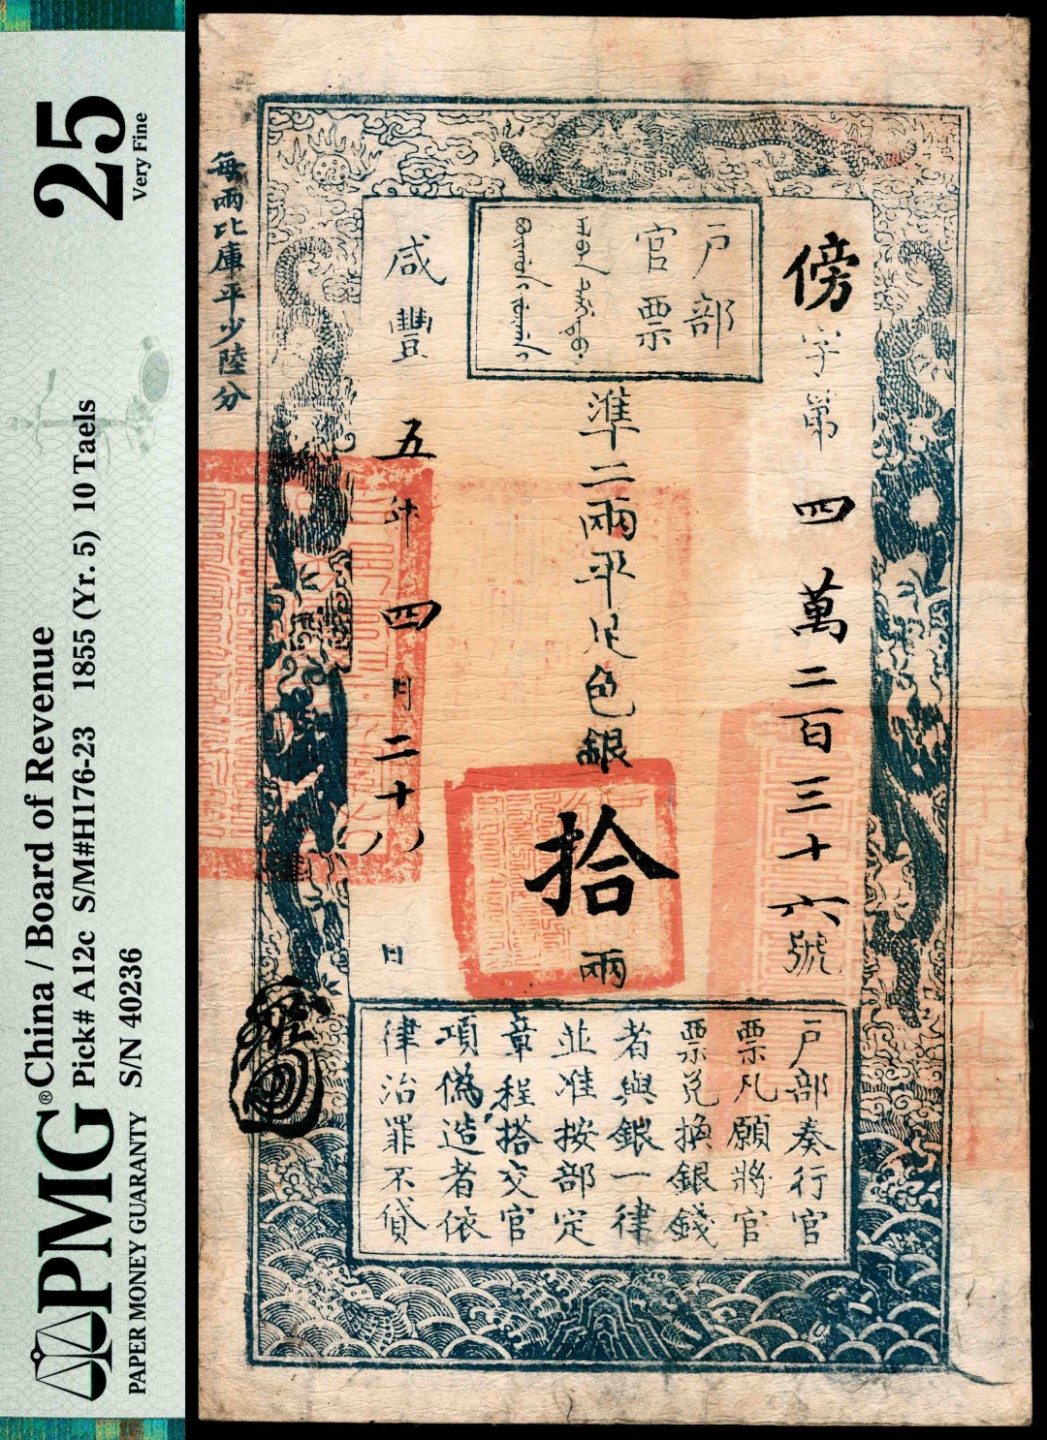 PMG®
PAPER MONEY GUARANTY
China / Board of Revenue
Pick# A12c S/M#H176-23 1855 (Yr. 5) 10 Taels
S/N 40236
25
Very Fine
戶部
官票
傍字第四萬二百三十六號
準二兩平足色銀拾兩
咸豐五年四月二十八日
每兩比庫平少陸分
戶部奏行官
票凡願將官
票兌換銀錢
者與銀一律
並准按部定
章程搭交官
項偽造者依
律治罪不貸